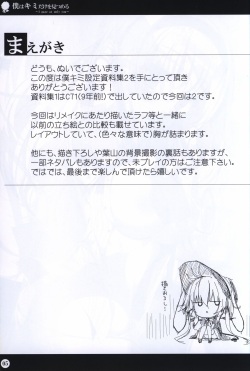 僕はキミだけを見つめる
まえがき
どうも、ぬいでございます。
この度は僕キミ設定資料集2を手にとって頂き
ありがとうございます！
資料集1はC71(9年前!)で出していたので今回は2です。
今回はリメイクにあたり描いたラフ等と一緒に
以前の立ち絵との比較も載せています。
レイアウトしていて、(色々な意味で)胸が詰まります。
他にも、描き下ろしや葉山の背景撮影の裏話もありますが、
一部ネタバレもありますので、未プレイの方はご注意下さい。
ではでは、最後まで楽しんで頂けたら嬉しいです。